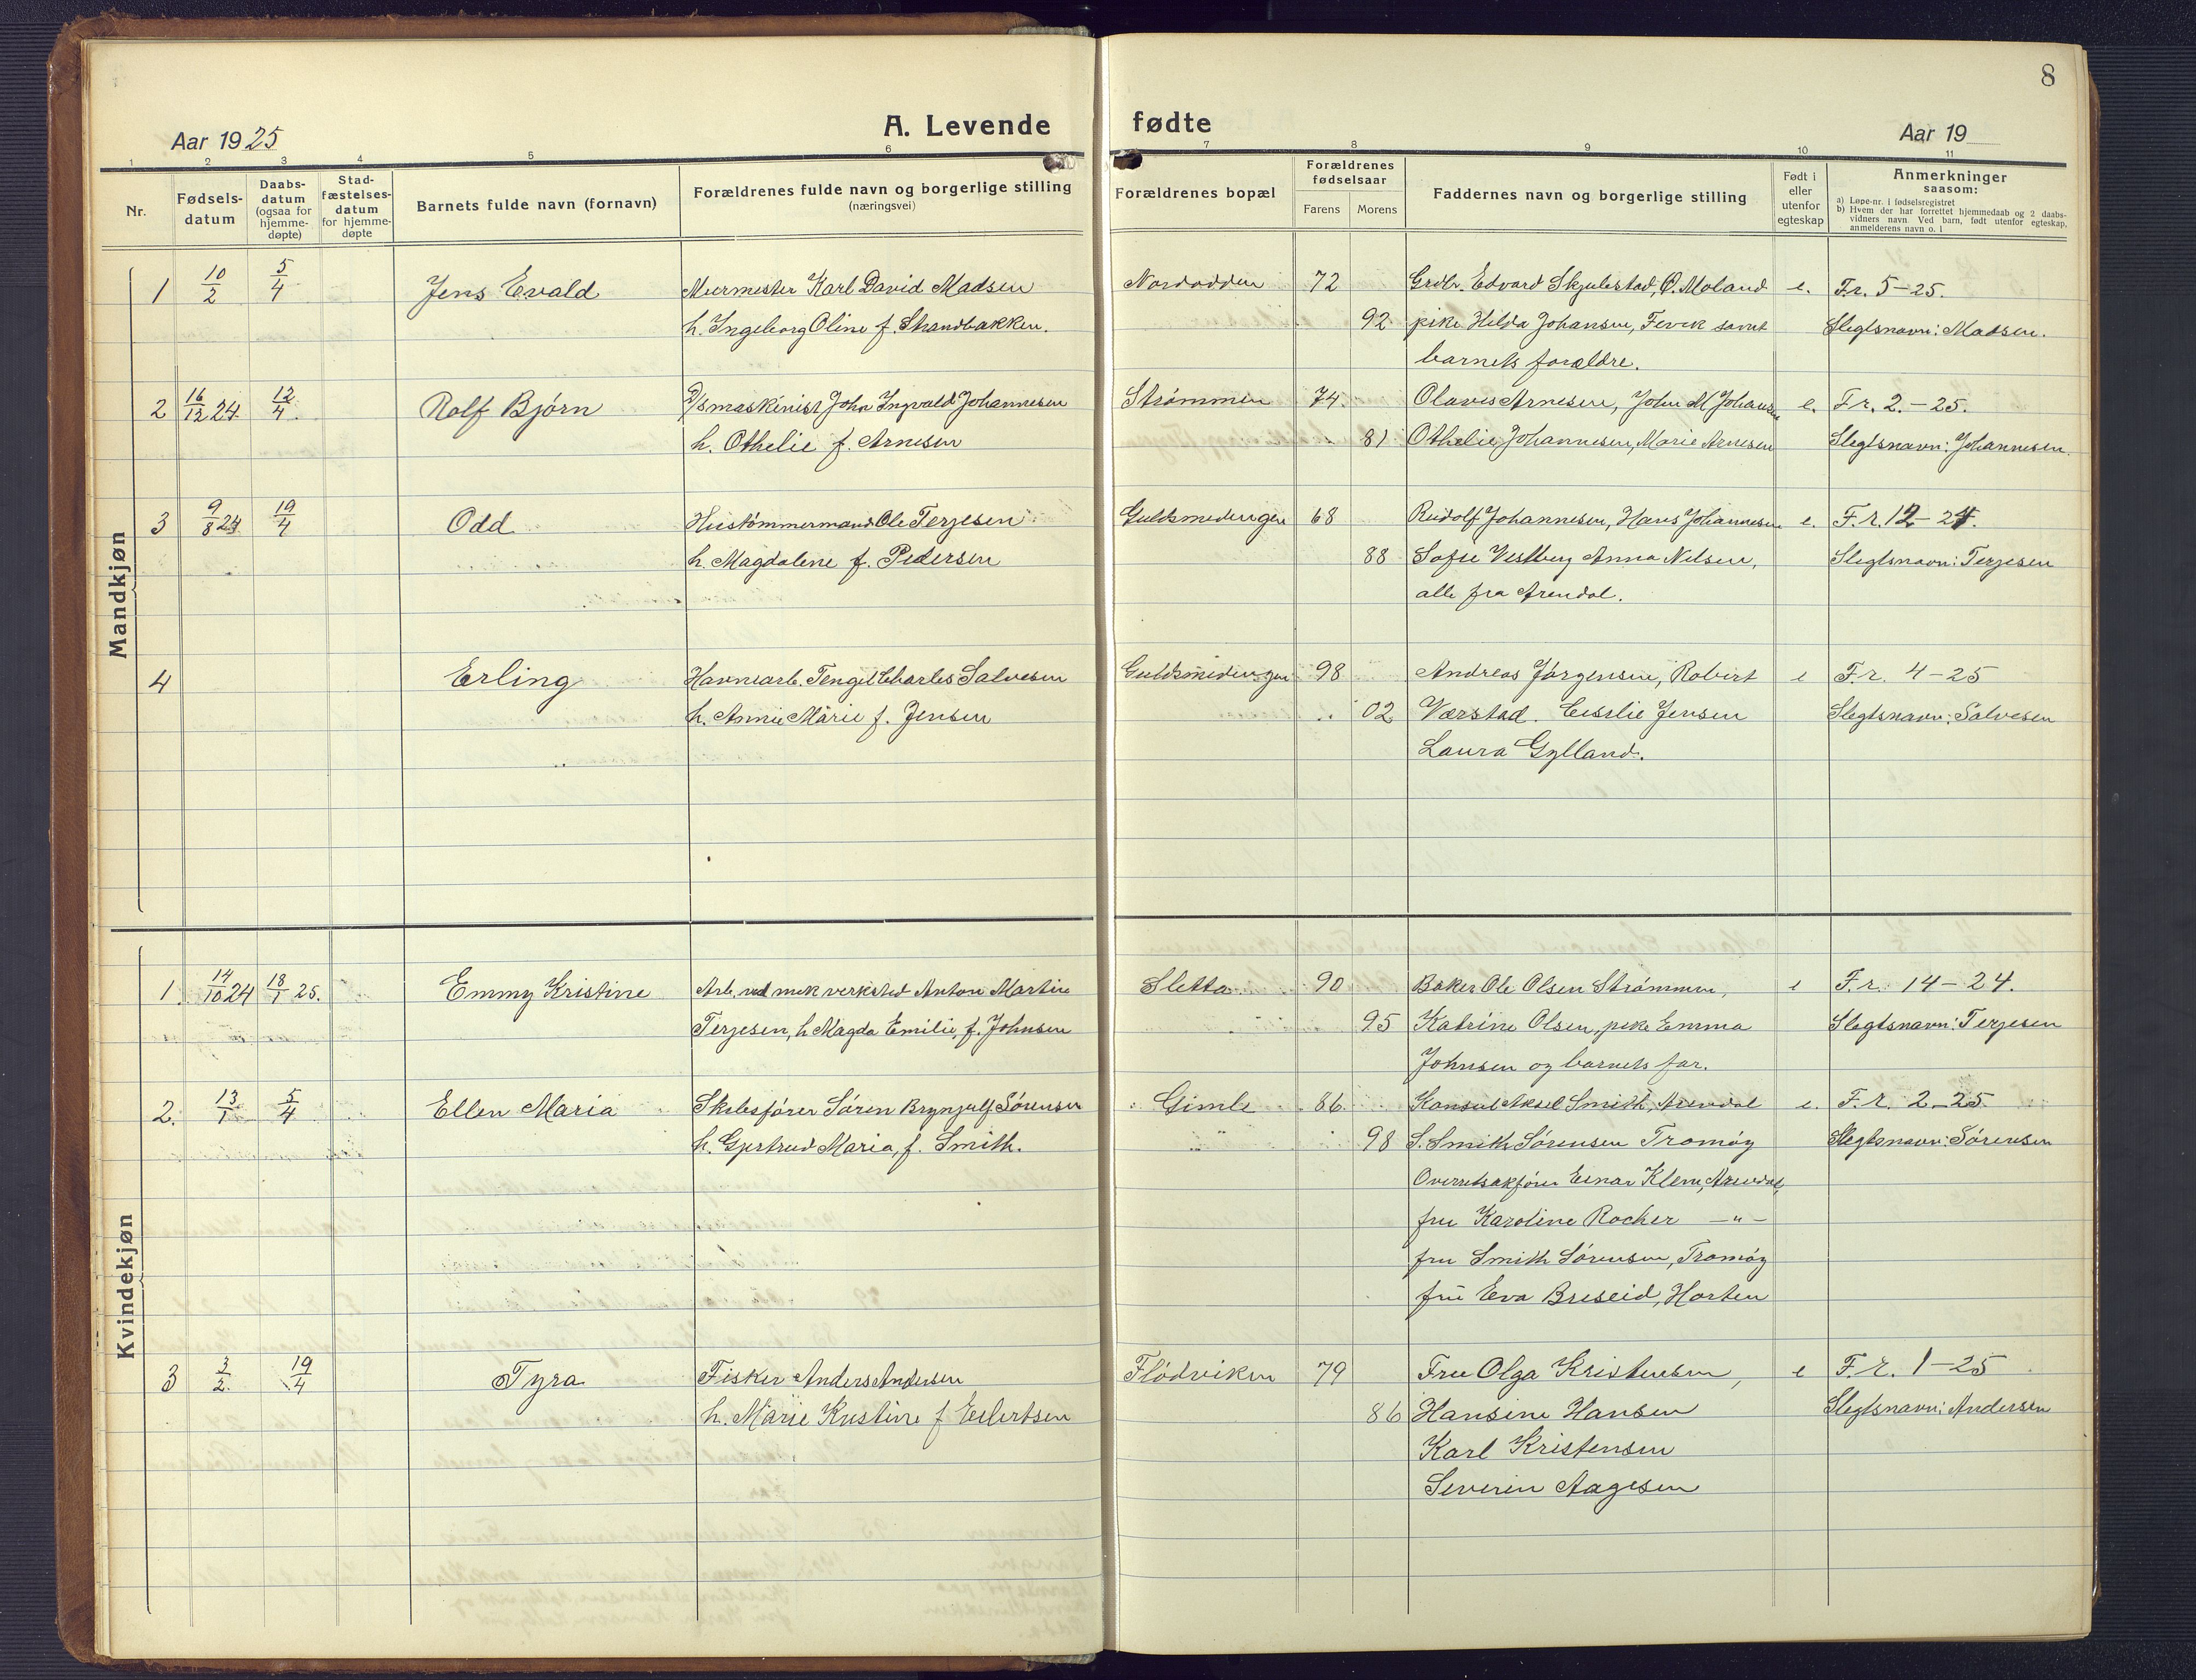 8
A. Levende fødte
Aar 1925
Aar 19
1 2 3 4 5 6 7 8 9 10 11
Nr.
Fødselsdatum
Daabsdatum (ogsaa for hjemmedøpte)
Stadfæstelsesdatum for hjemmedøpte
Barnets fulde navn (fornavn)
Forældrenes fulde navn og borgerlige stilling (næringsvei)
Forældrenes bopæl
Forældrenes fødselsaar
Farens Morens
Faddernes navn og borgerlige stilling
Født i eller utenfor egteskap
Anmerkninger saasom:
a) Løpe-nr. i fødselsregistret
b) Hvem der har forrettet hjemmedaab og 2 daabsvidners navn Ved barn, født utenfor egteskap, anmelderens navn o. l
Mandkjøn
1 10/2 5/4 Jens Evald Murmester Karl David Madsen Nordodden 72 Grdbr. Edvard Skjulestad, Ø. Moland e. F.r. 5-25.
h. Ingeborg Oline f. Strandbakken. 92 pike Hilda Johansen, Fevik samt Slegtsnavn: Madsen.
barnets forældre.
2 16/12 24 12/4. Rolf Bjørn D/smaskinist John Ingvald Johannesen Strømmen 74. Olaves Arnesen, John M Johansen e. F.r. 2.-25.
h. Othelie f. Arnesen 81 Othelie Johannesen, Marie Arnesen Slegtsnavn: Johannesen.
3 9/8 24 19/4 Odd Hustømmermand Ole Terjesen Guldsmedengen 68 Rudolf Johannesen, Hans Johannesen e. F.r. 12-24.
h. Magdalene f. Pedersen 88 Sofie Vestberg Anna Nilsen, Slegtsnavn: Terjesen
alle fra Arendal.
4 Erling Havnearb. Tengel Charles Salvesen Guldsmedengen 98 Andreas Jørgensen, Robert e F.r. 4-25
h. Annie Marie f. Jensen 02 Værstad. Cecilie Jensen Slegtsnavn: Salvesen
Laura Gylland.
Kvindekjøn
1. 14/10 24 18/1 25. Emmy Kristine Arb. ved mek verksted Anton Martin Sletta 90 Baker Ole Olsen Strømmen, e F.r. 14-24.
Terjesen, h Magda Emilie, f. Johnsen 95 Katrine Olsen, pike Emma Slegtsnavn: Terjesen
Johnsen og barnets far.
2. 13/1 5/4 Ellen Maria Skibsfører Søren Brynjulf Sørensen Gimle 86 Konsul Aksel Smith, Arendal e. F.r. 2-25
h. Gjertrud Maria, f. Smith. 98 S. Smith Sørensen Tromøy Slegtsnavn: Sørensen
Overretsakfører Einar Klem, Arendal,
fru Karoline Rocher -"-
fru Smith Sørensen, Tromøy
fru Eva Breseid, Horten
3 3/2. 19/4 Tyra Fisker Anders Andersen Flødviken 79 Fru Olga Kristensen, e F.r. 1-25
h. Marie Kristine f Eilertsen 86 Hansine Hansen Slegtsnavn: Andersen
Karl Kristensen
Severin Aagesen